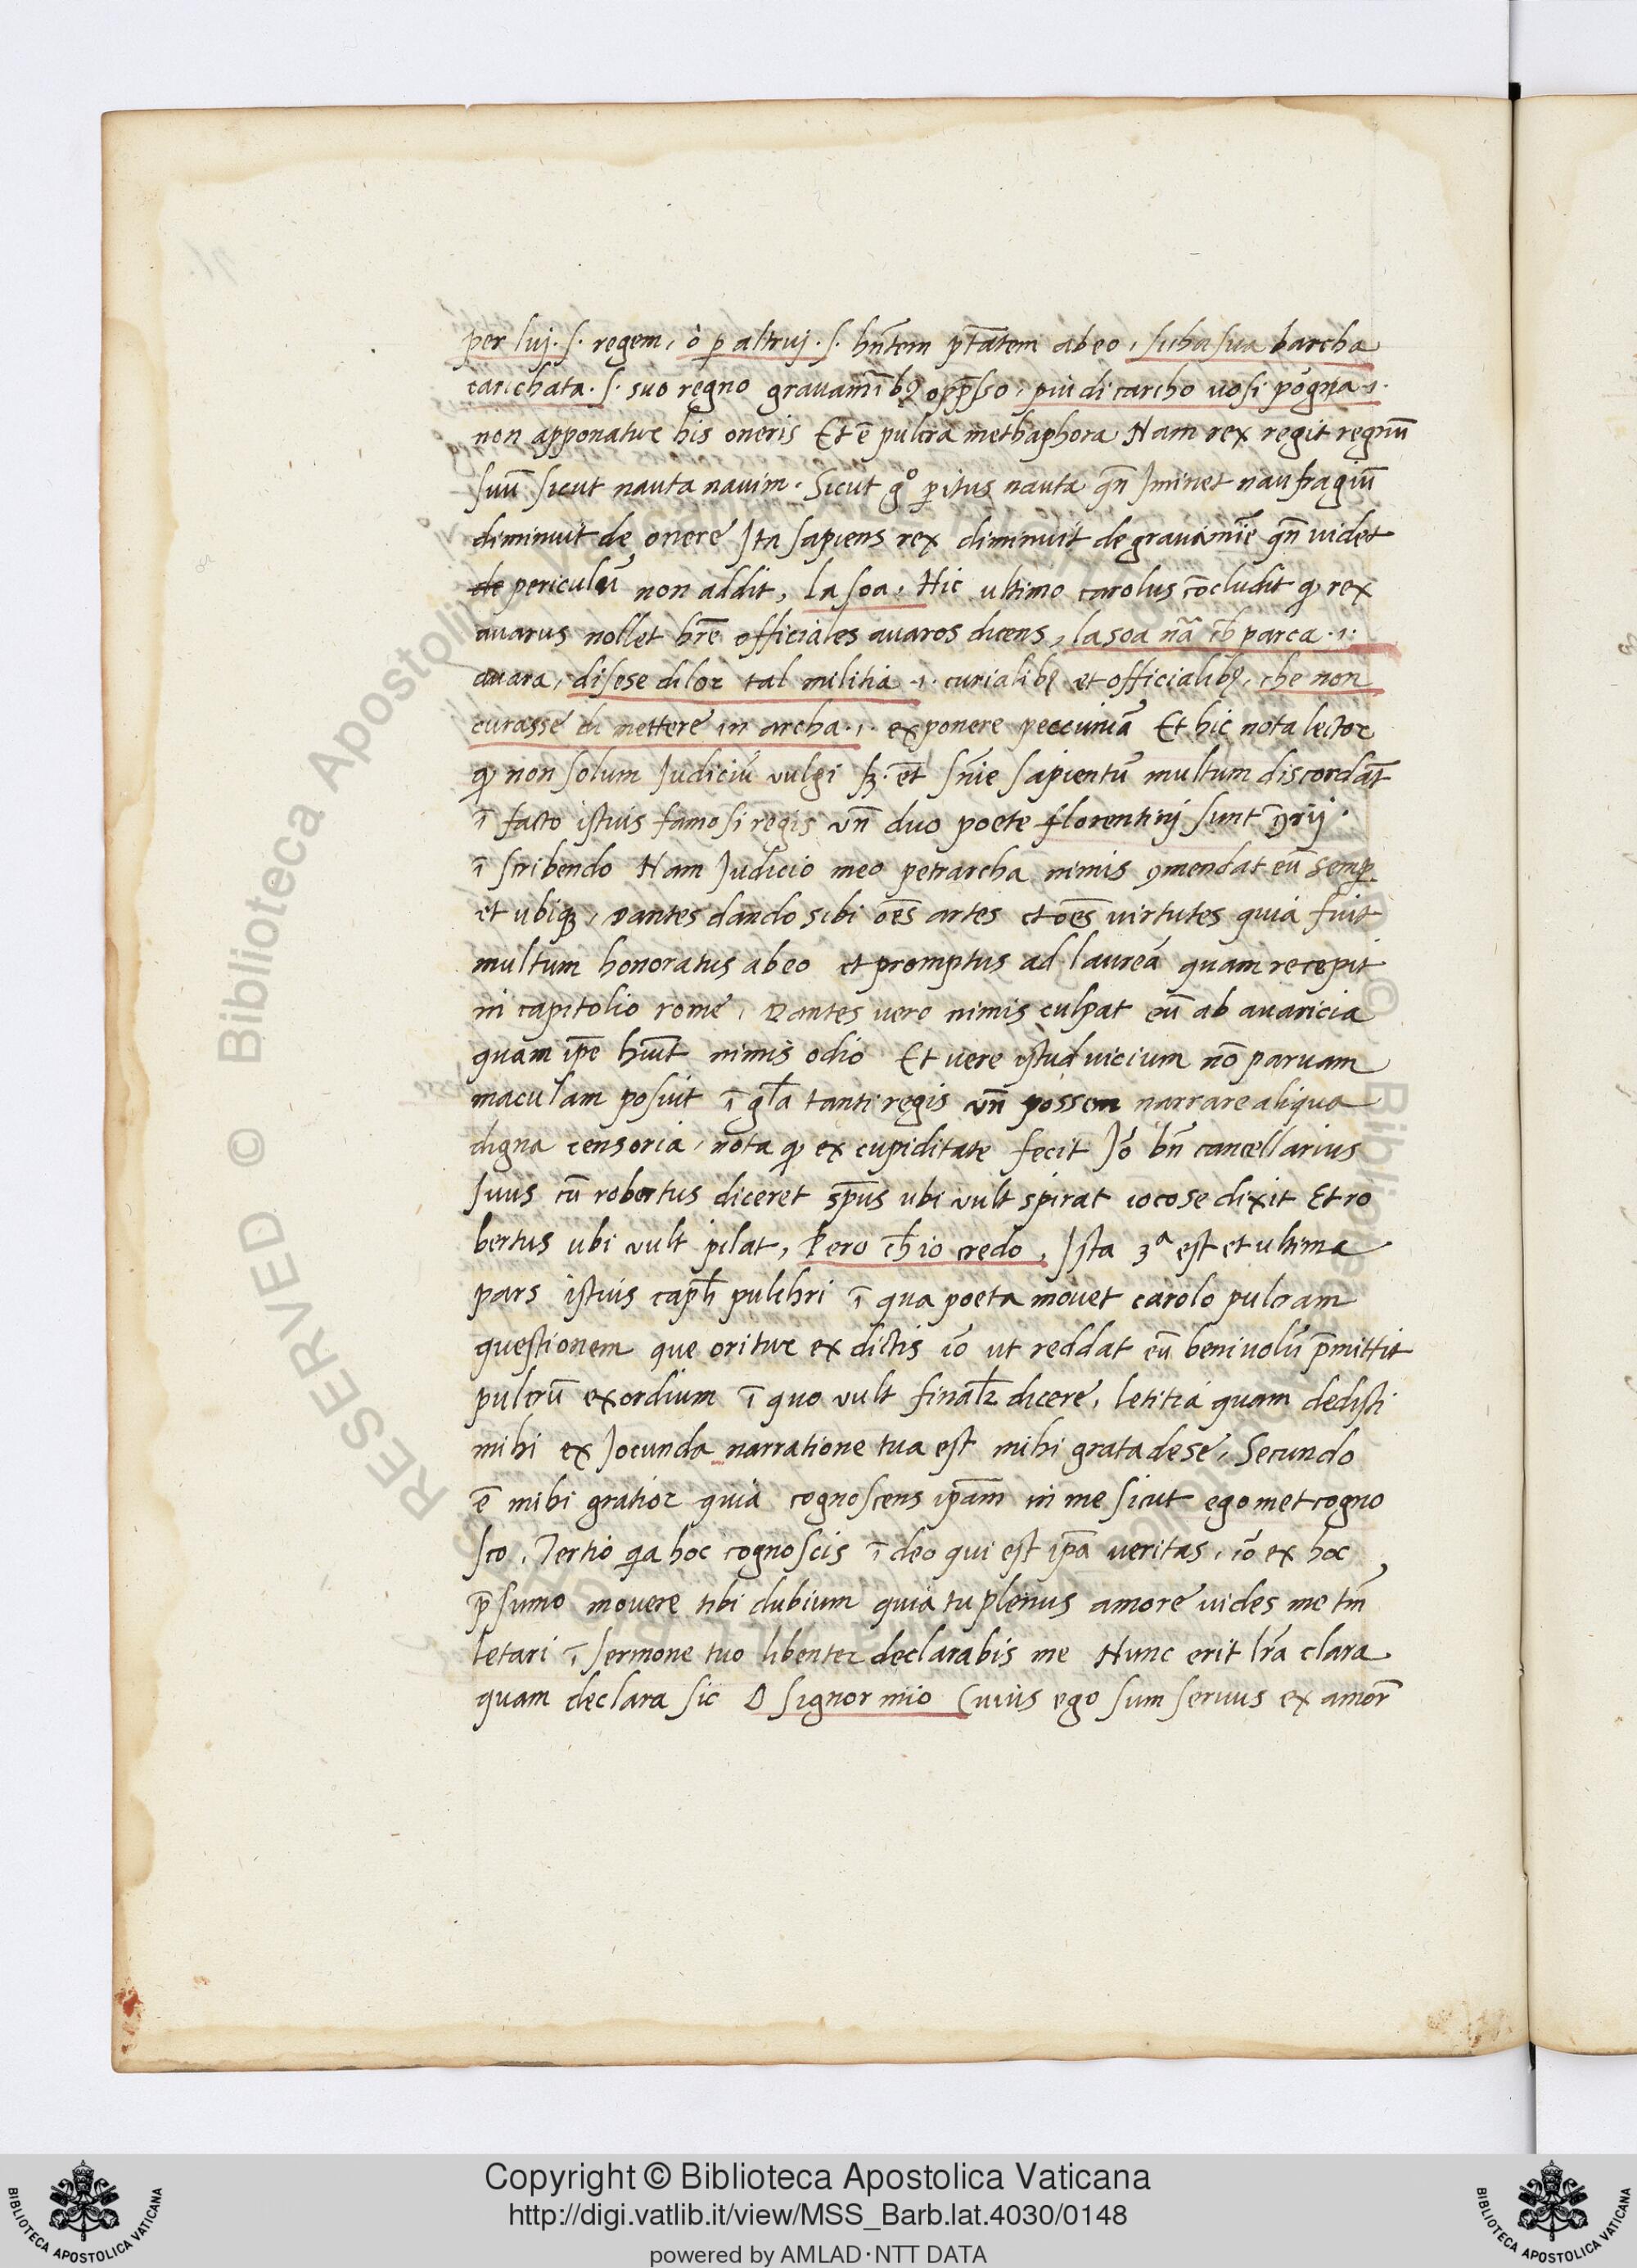 per luj. s. regem, ò ꝑ altruj. s. hn̄tem pt̄atem abeo, suba sua barcha
carichata. s. suo regno grauam̄ibꝫ opp̄sso, piu di carcho uosi pógna .ı.
non apponatur his oneris Et ē pulcra methaphora Nam rex regit regnū
suū sicut nauta nauim. Sicut gͦ ꝑitus nauta qn̄ Jminet naufragiū
diminuit de onere Jta sapiens rex diminuit de grauamīe qn̄ videt
de periculū non addit, la soa, Hic ultimo carolus c̄ocludit ꝙ rex
auarus nollet hr̄e officiales auaros dicens, la soa nā ch̄ parca .ı.
auara, disese di lor tal militia .ı. curialibꝫ et officialibꝫ, che non
curasse di mettere in archa .ı. exponere peccuniā Et hic nota lector
ꝙ non solum Judiciū vulgi sꝫ. et̄ sn̄ie sapientū multum discordāt
ī facto istius famosi regis vn̄ duo poete florentinj sunt ꝯ̄rij.
ī scribendo Nam Judicio meo petrarcha nimis ꝯmendat eū semꝑ
et ubiqꝫ, Dantes dando sibi oēs artes et oēs virtutes quia fuit
multum honoratus abeo et promptus ad laureā quam recepit
in capitolio rome, Dantes vero nimis culpat eū ab auaricia
quam ip̄e hūit nimis odio Et vere istud vicium nō paruam
maculam posuit ī gl̄a tanti regis vn̄ possem narrare aliqua
digna censoria, nota ꝙ ex cupiditate fecit Jō bn̄ cancellarius
suus cū robertus diceret sp̄us ubi vult spirat iocose dixit Et ro
bertus ubi vult pilat, Pero ch̄ io credo, Jsta 3ª est et ultima
pars istius capl̄i pulchri ī qua poeta mouet carolo pulcram
questionem que oritur ex dictis iō ut reddat eū beniuolū p̄mittit
pulcrū exordium ī quo vult finalꝫ dicere, letitiā quam dedisti
mihi ex Jocunda narratione tua est mihi grata de se, Secundo
ē mihi gratior quia cognoscens ip̄am in me sicut egomet cogno
sco, Tertio qa hoc cognoscis ī deo qui est ip̄a veritas, iō ex hoc
p̄sumo mouere tibi dubium quia tu plenus amore vides me tm̄
letari ī sermone tuo libenter declarabis me Nunc erit lr̄a clara
quam declara sic O signor mio Cuius ego sum seruus ex amor̄
Copyright © Biblioteca Apostolica Vaticana
http://digi.vatlib.it/view/MSS_Barb.lat.4030/0148
powered by AMLAD·NTT DATA
BIBLIOTECA APOSTOLICA VATICANA
BIBLIOTECA APOSTOLICA VATICANA